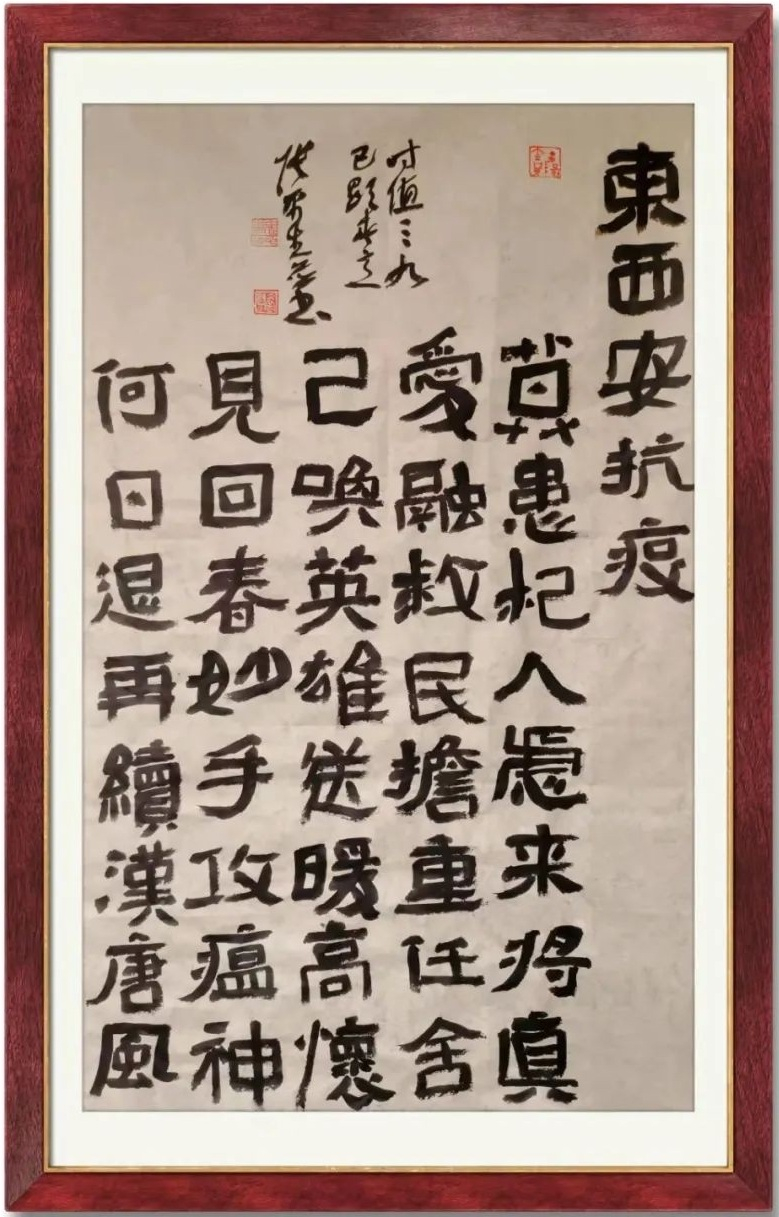 東西安抗疫
莫患杞人慮来将眞
愛融救民擔重任舍
己喚英雄送暖高懷
見回春妙手攻瘟神
何日退再續漢唐風
时值三九
已顯春意